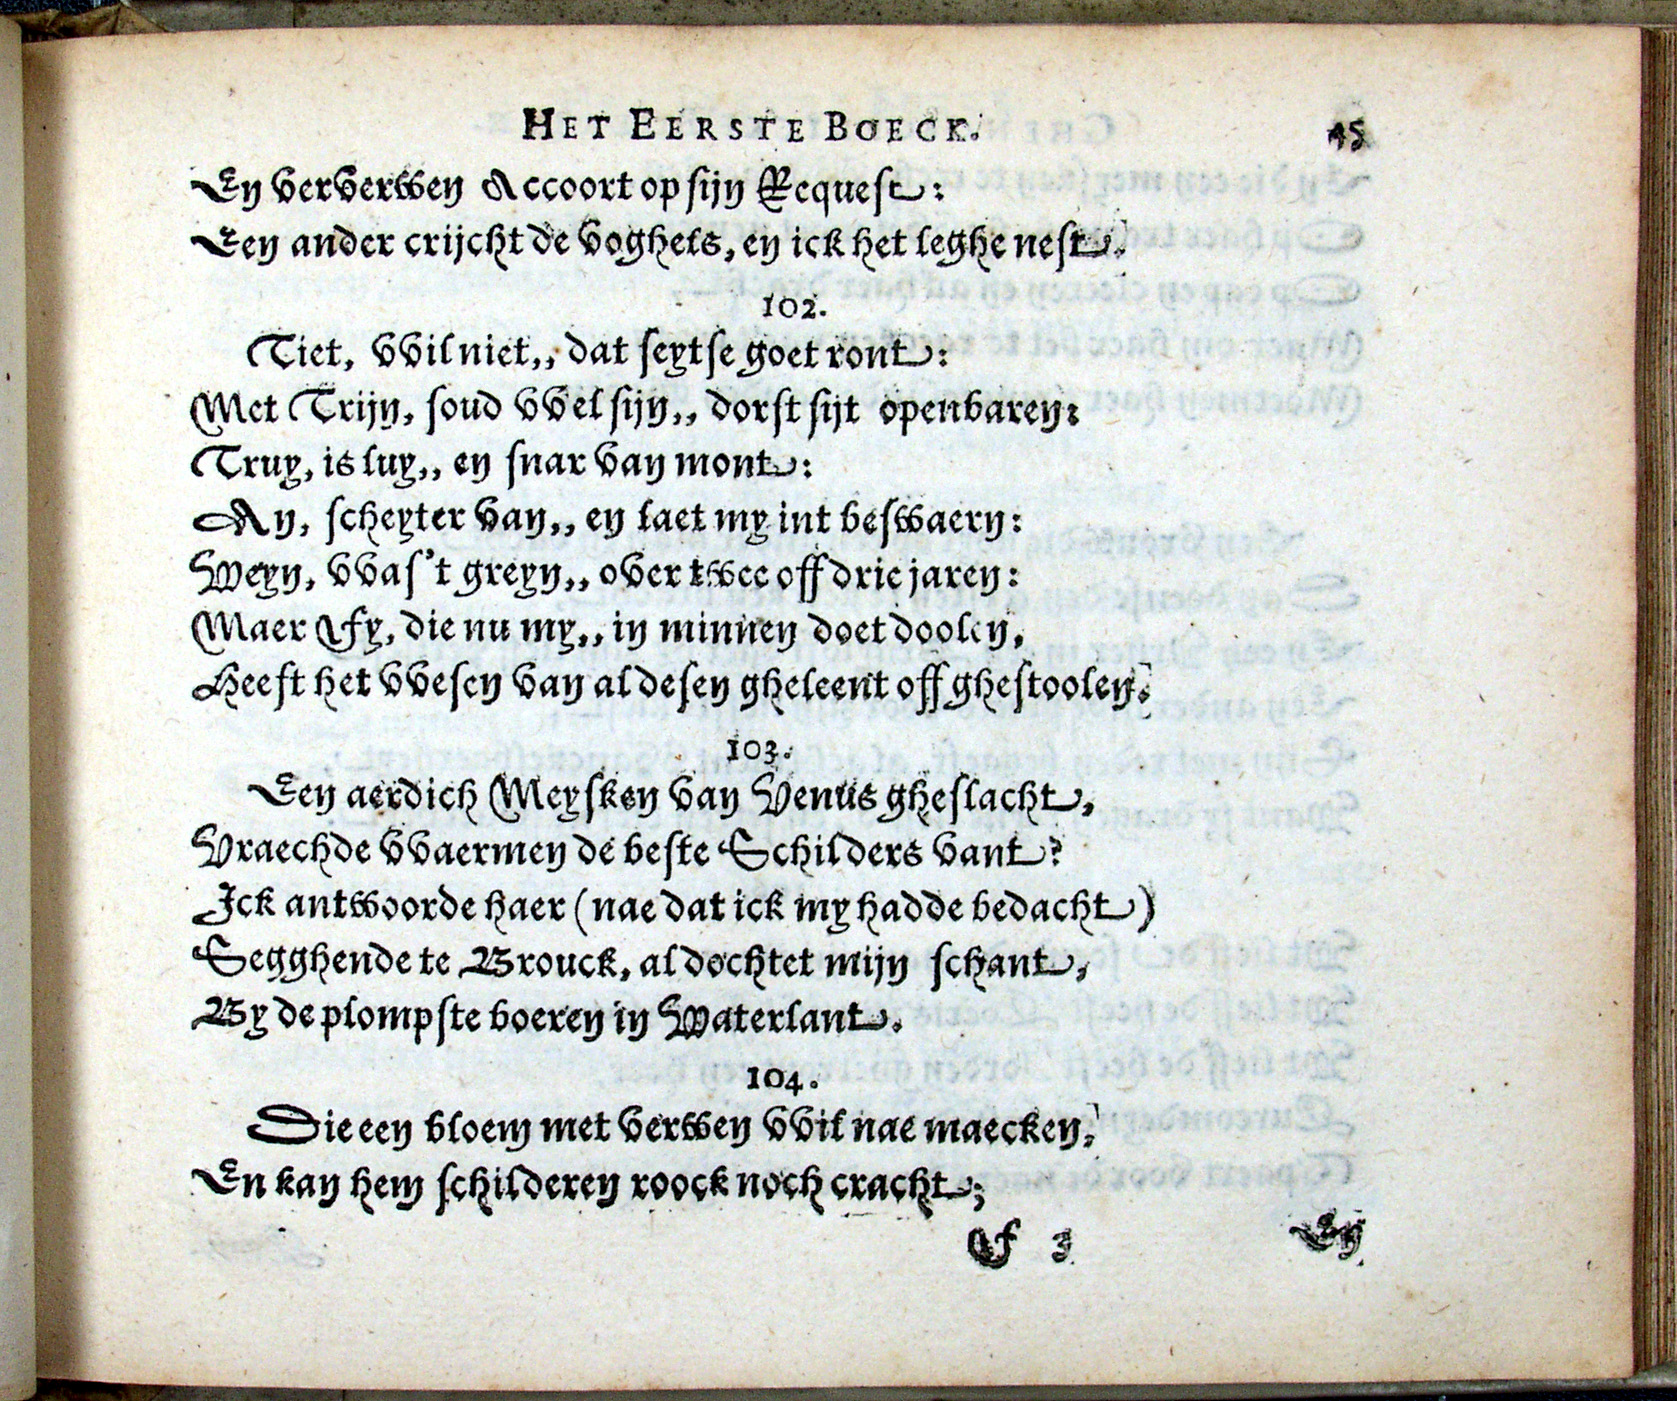 HET EERSTE BOECK. 45
En ververwen Accoort op sijn Request:
Een ander crijcht de voghels, en ick het leghe nest.
102.
Tiet, vvil niet,, dat seytse goet ront:
Met Trijn, soud vvel sijn,, dorst sijt openbaren:
Truy, is luy,, en snar van mont:
An, scheyter van,, en laet my int beswaern:
Weyn, vvas't greyn,, over twee off drie jaren:
Maer Fy, die nu my,, in minnen doet doolen,
Heeft het vvesen van al desen gheleent off ghestoolen.
103.
Een aerdich Meysken van Venus gheslacht,
Vraechde vvaermen de beste Schilders vant?
Ick antwoorde haer (nae dat ick my hadde bedacht)
Segghende te Brouck, al dochtet mijn schant,
By de plompste boeren in Waterlant.
104.
Die een bloem met verwen vvil nae maecken,
En kan hem schilderen roock noch cracht;
F 3 En